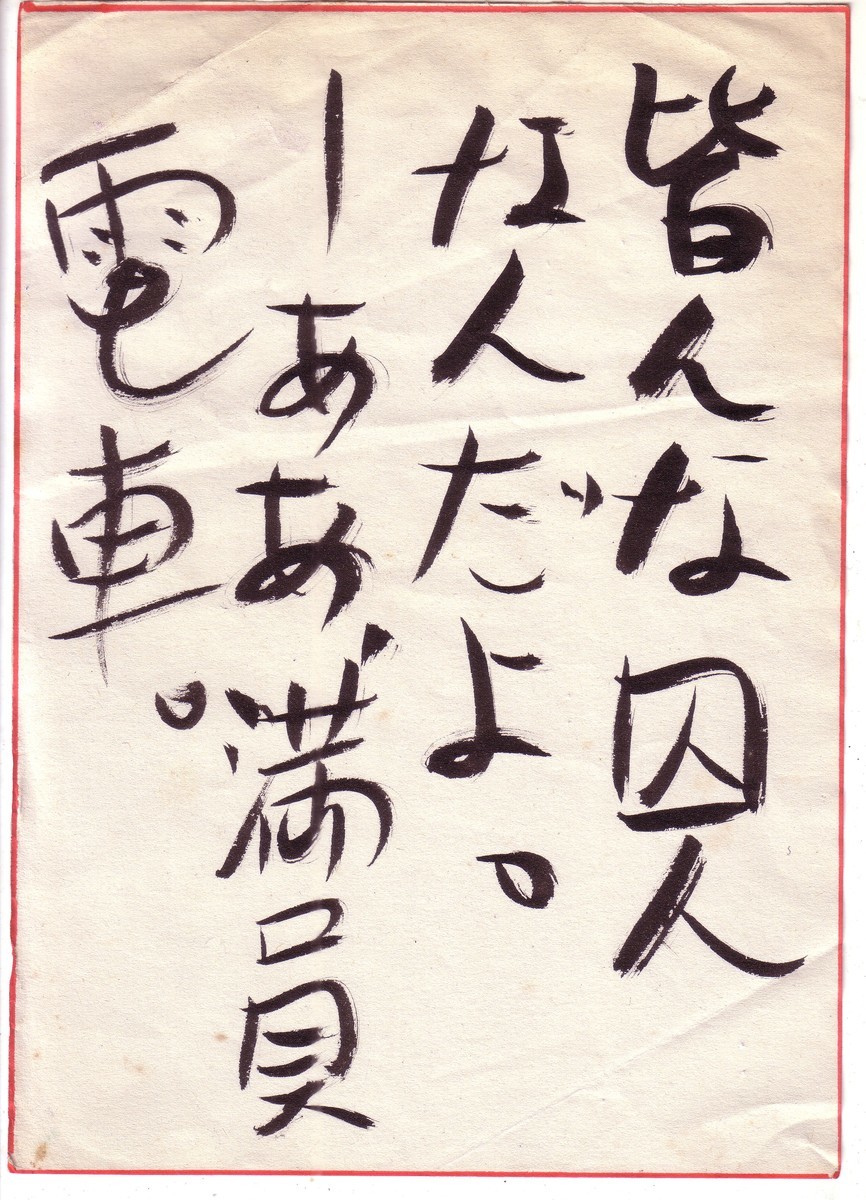 皆んな囚人
なんだよ。
―ああ、満員
電車。